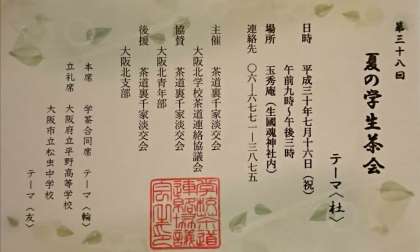 第三十八回
夏の学生茶会
テーマ〈杜〉
日時 平成三十年七月十六日(祝)
午前九時〜午後三時
場所 玉秀庵(生國魂神社内)
連絡先 〇六―六七七一―三八七五
主催 茶道裏千家淡交会
大阪北学校茶道連絡協議会
協賛 茶道裏千家淡交会
大阪北青年部
後援 茶道裏千家淡交会
大阪北支部
本席 学茶合同席 テーマ〈輪〉
立礼席 大阪府立平野高等学校
大阪市立松虫中学校
テーマ〈友〉